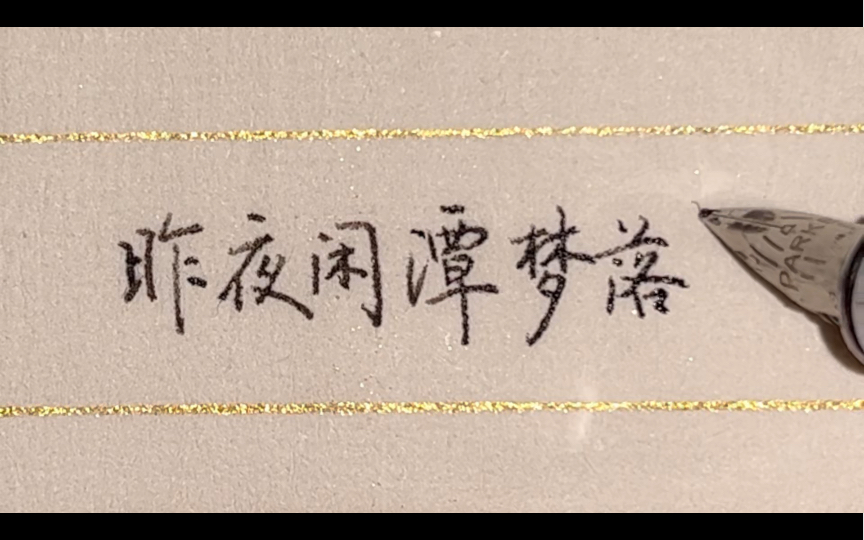 昨夜闲潭梦落
PARK